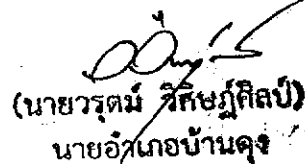 (นายวรุตม์ วิศิษฎ์ศิลป์)
นายอำเภอบ้านดุง